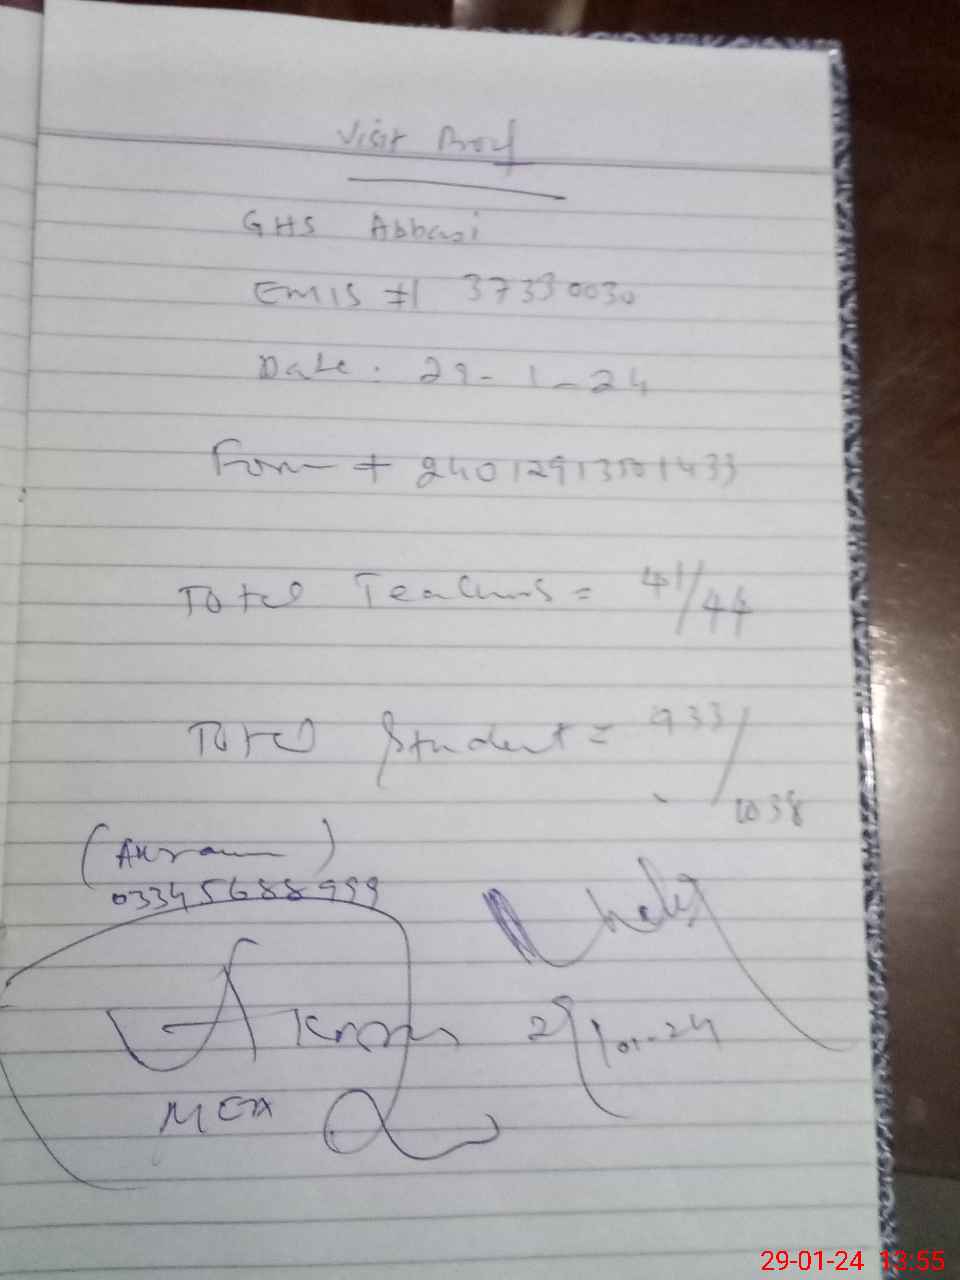 Visit Proof
GHS Abbasi
EMIS # 37330030
Date: 29-1-24
Form # 24012913501433
Total Teachers = 41/44
Total Student = 933/1038
(Akram)
03345688999
Akram
29/01-24
MEA
29-01-24 13:55